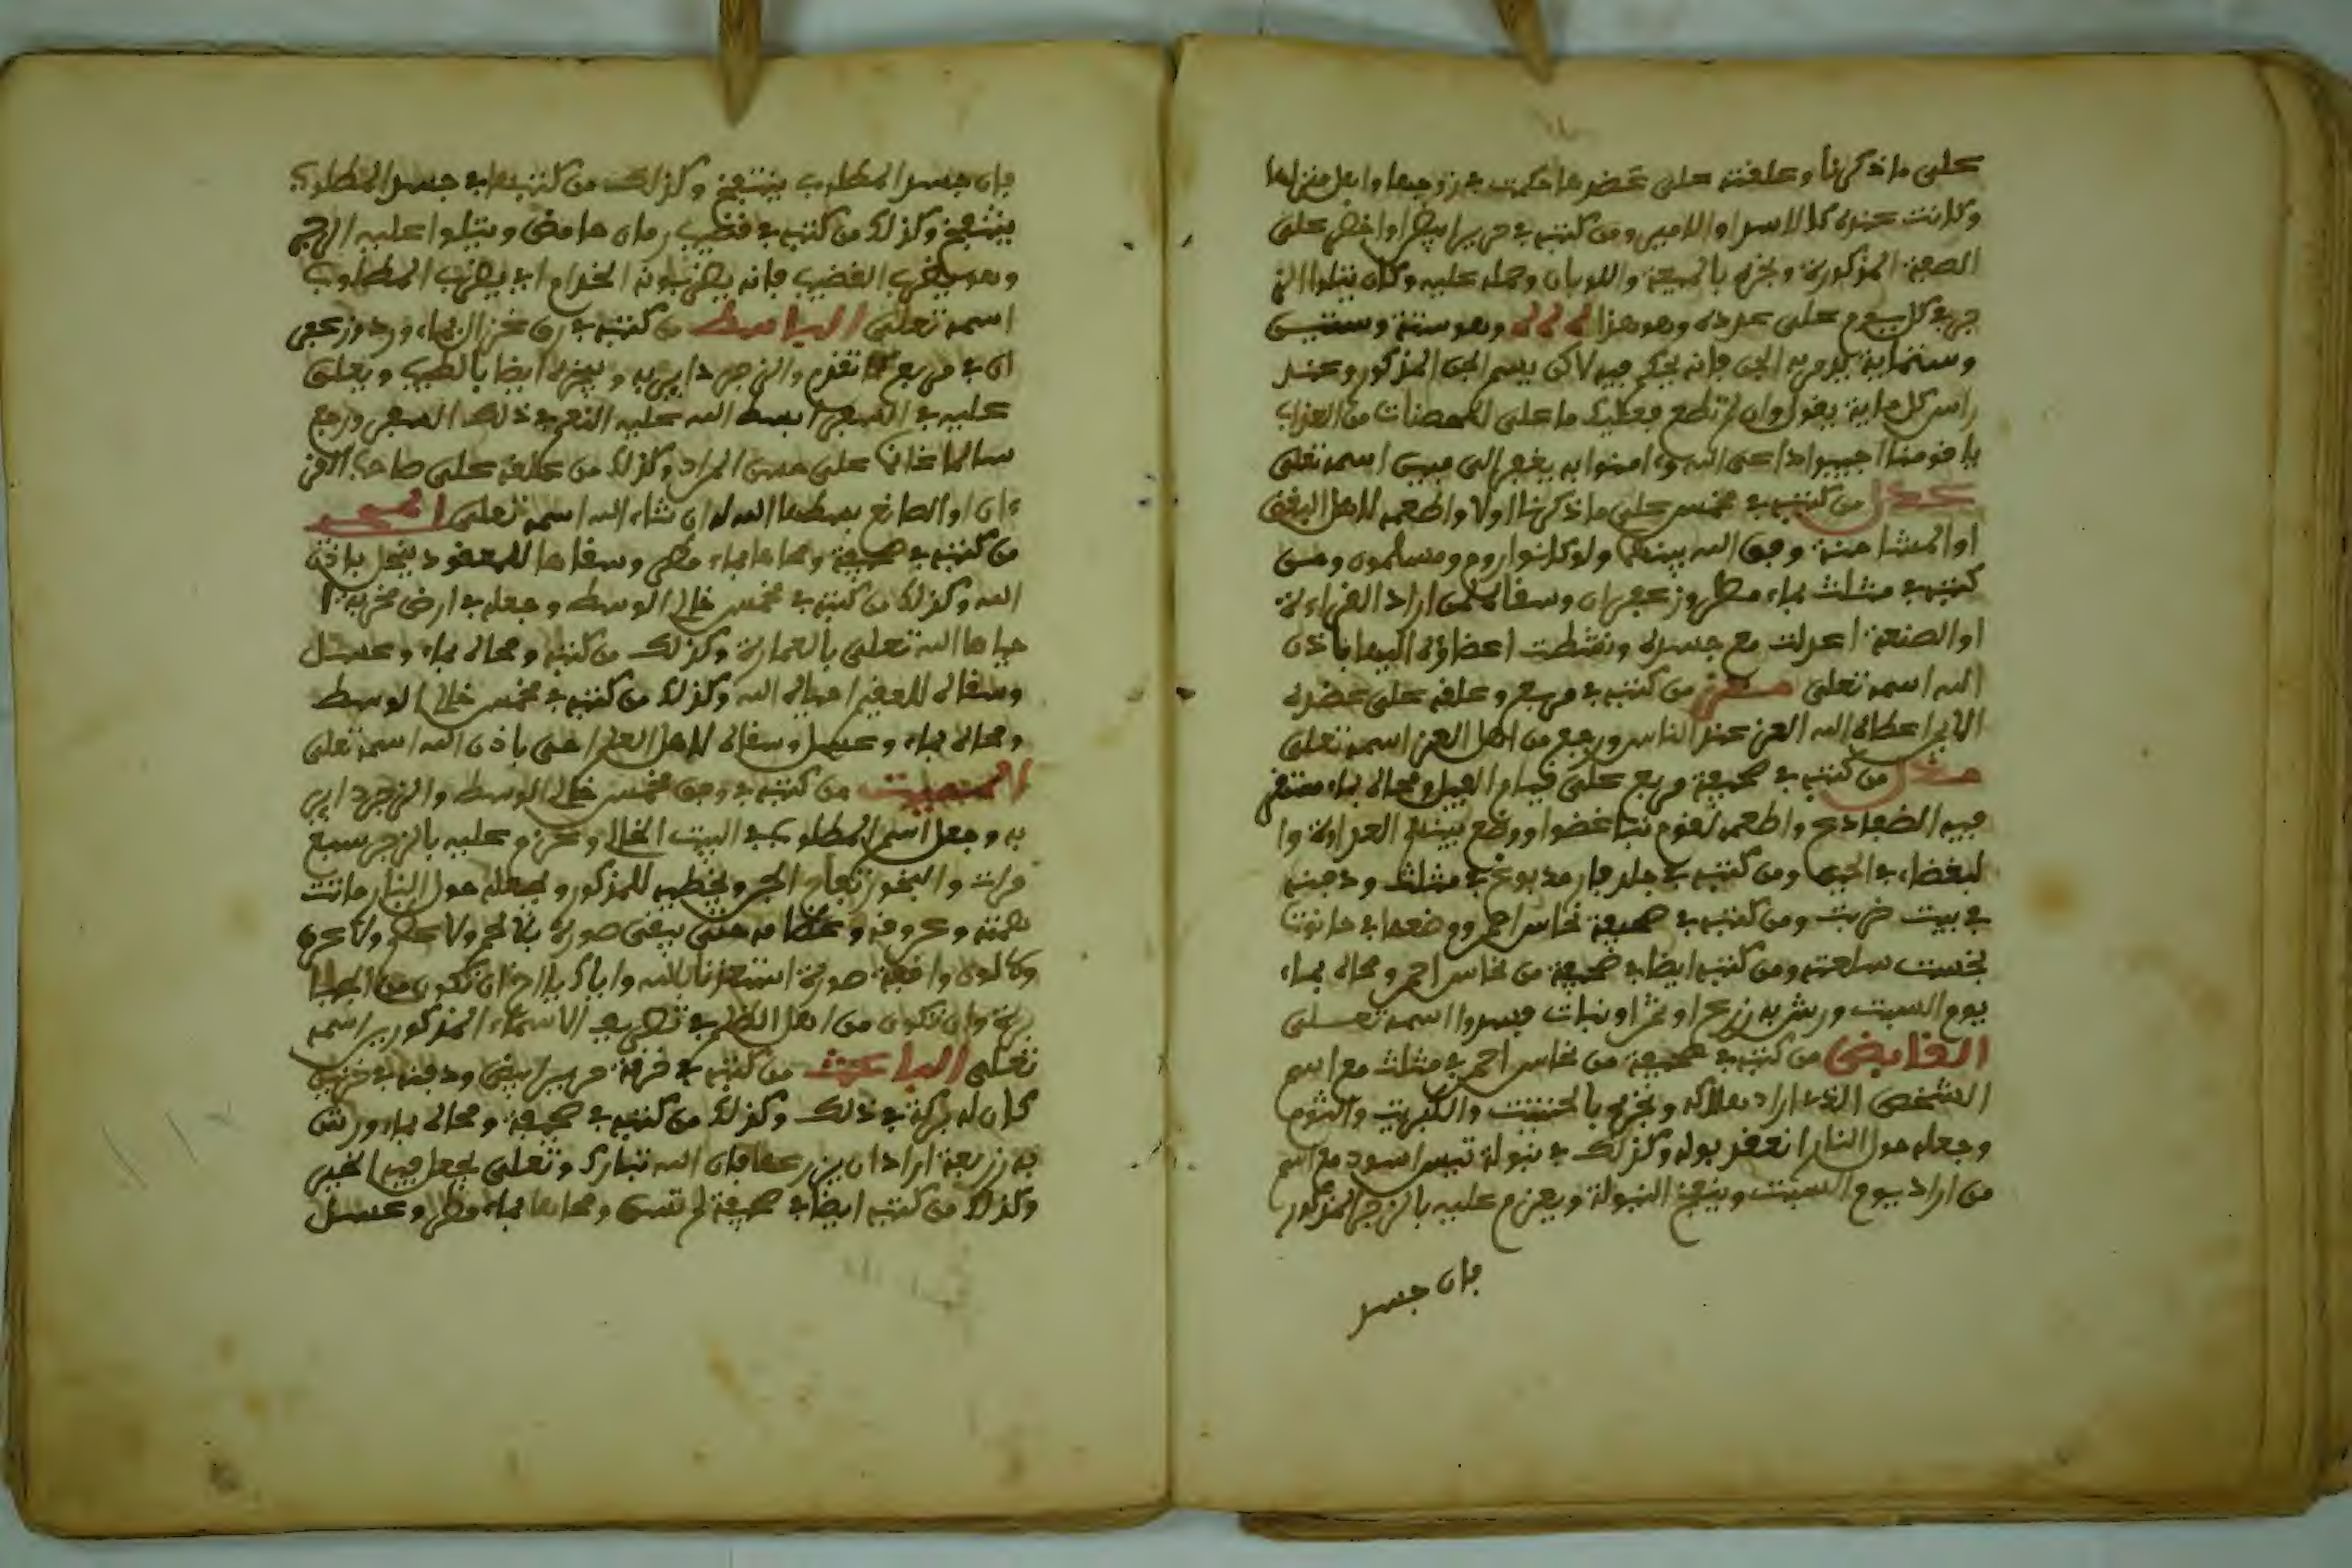 على ما ذكرنا وعلقته على عضدها حكمت في زوجها واهل منزلها
وكانت عنده كالاسد او الامير ومن كتبه في حرير اصفر او اخضر على
الصفة المذكورة وبخره بالميعة واللوبان وحمله عليه وكان يتلوا الز
جر في كل يوم على عدده وهو هذا وهو ستة وستين
وستماية يومر به الجن فانه يحكم فيه لاكن يسم الجن المذكور وعند
راس كل ماية يقول وان لم تطع فعليك ما على المحصنات من العذاب
يا قومنا اجيبوا داعى الله وءامنوا به يغفر الى مبين اسمه تعلى
عدل من كتبه في مخمس على ما ذكرنا اولا واطعمه لاهل البغض
او المشاحنة وفق الله بينهم ولو كانوا روم ومسلمون ومن
كتبه في مثلث بماء مطر وزعفران وسقاه لمن اراد القراءة
او الصنعة اعدلت مع جسده ونشطت اعضاؤه اليها باذن
الله اسمه تعلى معز من كتبه في مربع وعلقه على عضده
الايمن اعطاه الله العز عند الناس ورجع من اهل العز اسمه تعلى
مذل من كتبه في صحيفة مربع على قيام الفيل ومحاه بماء
فيه الضفادع واطعمه لقوم تباغضوا ووقع بينهم العداوة وا
لبغضاء في الحين ومن كتبه في جلد فار مدبوغ في مثلث ودفنه
في بيت خربت ومن كتبه في صحيفة نحاس احمر ووضعها في حانوت
بخست سلعته ومن كتبه ايضا في صحيفة من نحاس احمر ومحاه بماء
يوم السبت ورش به زرع او ثمر او نبات فسدوا اسمه تعلى
القابض من كتبه في صحيفة من نحاس احمر في مثلث مع اسم
الشخص الذى اراد هلاكه وبخره بالحنتيت والكبريت والثوم
وجعله حول النار انعقد بوله وكذلك في نبولة تيس اسود مع اسم
من اراد يوم السبت وينفخ النبولة ويعزم عليه بالزجر المذكور
فان جسد
فان جسد المطلوب ينتفخ وكذلك من كتبها في جسد المطلوب
ينتفخ وكذلك من كتبه في قضيب رمان حامض ويتلوا عليه الزجر
وهو يضرب القضيب فانه يضربونه الخدام اي يضرب المطلوب
اسمه تعلى الباسط من كتبه في رق غزال بماء ورد وزعفر
ان في مربع تقدم والزجر داير به وبخره ايضا بالطيب ويعلق
عليه في السفر ابسط الله عليه النعم في ذلك السفر ورجع
سالما غانما على حسن المراد وكذلك من علقه على صاحب القر
ءان او الصانع بسطها الله له ان شاء الله اسمه تعلى المحيي
من كتبه في صحيفة ومحاها بماء مطر وسقاها للمعقود ينحل باذن
الله وكذلك من كتبه في مخمس خالي الوسط وجعله في ارض مخربة ا
حياها الله تعلى بالعمارة وكذلك من كتبه ومحاه بماء وعسل
وسقاه للعقيم احياه الله وكذلك من كتبه في مخمس خالي الوسط
ومحاه بماء وعسل وسقاه لاهل العلم احيى باذن الله اسمه تعلى
المميت من كتبه في وفق مخمس خالي الوسط والزجر داير
به وجعل اسم المطلوب في البيت الخالي وعزم عليه بالزجر سبع
مرات والبخور تفاح الجن ويخطبه للمذكور ويجعله حول النار ماتت
همته وعروقه وعظامه حتى يبقى صورة بلا لحم ولا عظم ولا عرق
ولا لون واقفة صورة استعذنا بالله واياك يا اخى ان تكون من الجبا
برة وان تكون من اهل الظلم في تصريف الاسماء المذكورين اسمه
تعلى الباعث من كتبه في خرقة حرير ابيض ودفنه في خزين
كان له بركة في ذلك وكذلك من كتبه في صحيفة ومحاه بماء ورش
به زريعة اراد ان يزرعها فان الله تبارك وتعلى يجعل فيها الخير
وكذلك من كتبه ايضا في صحيفة لم تمس ومحاها بماء مطر وعسل